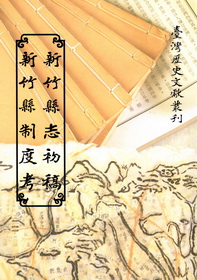 臺灣歷史文獻叢刊
新竹縣志初稿
新竹縣制度考